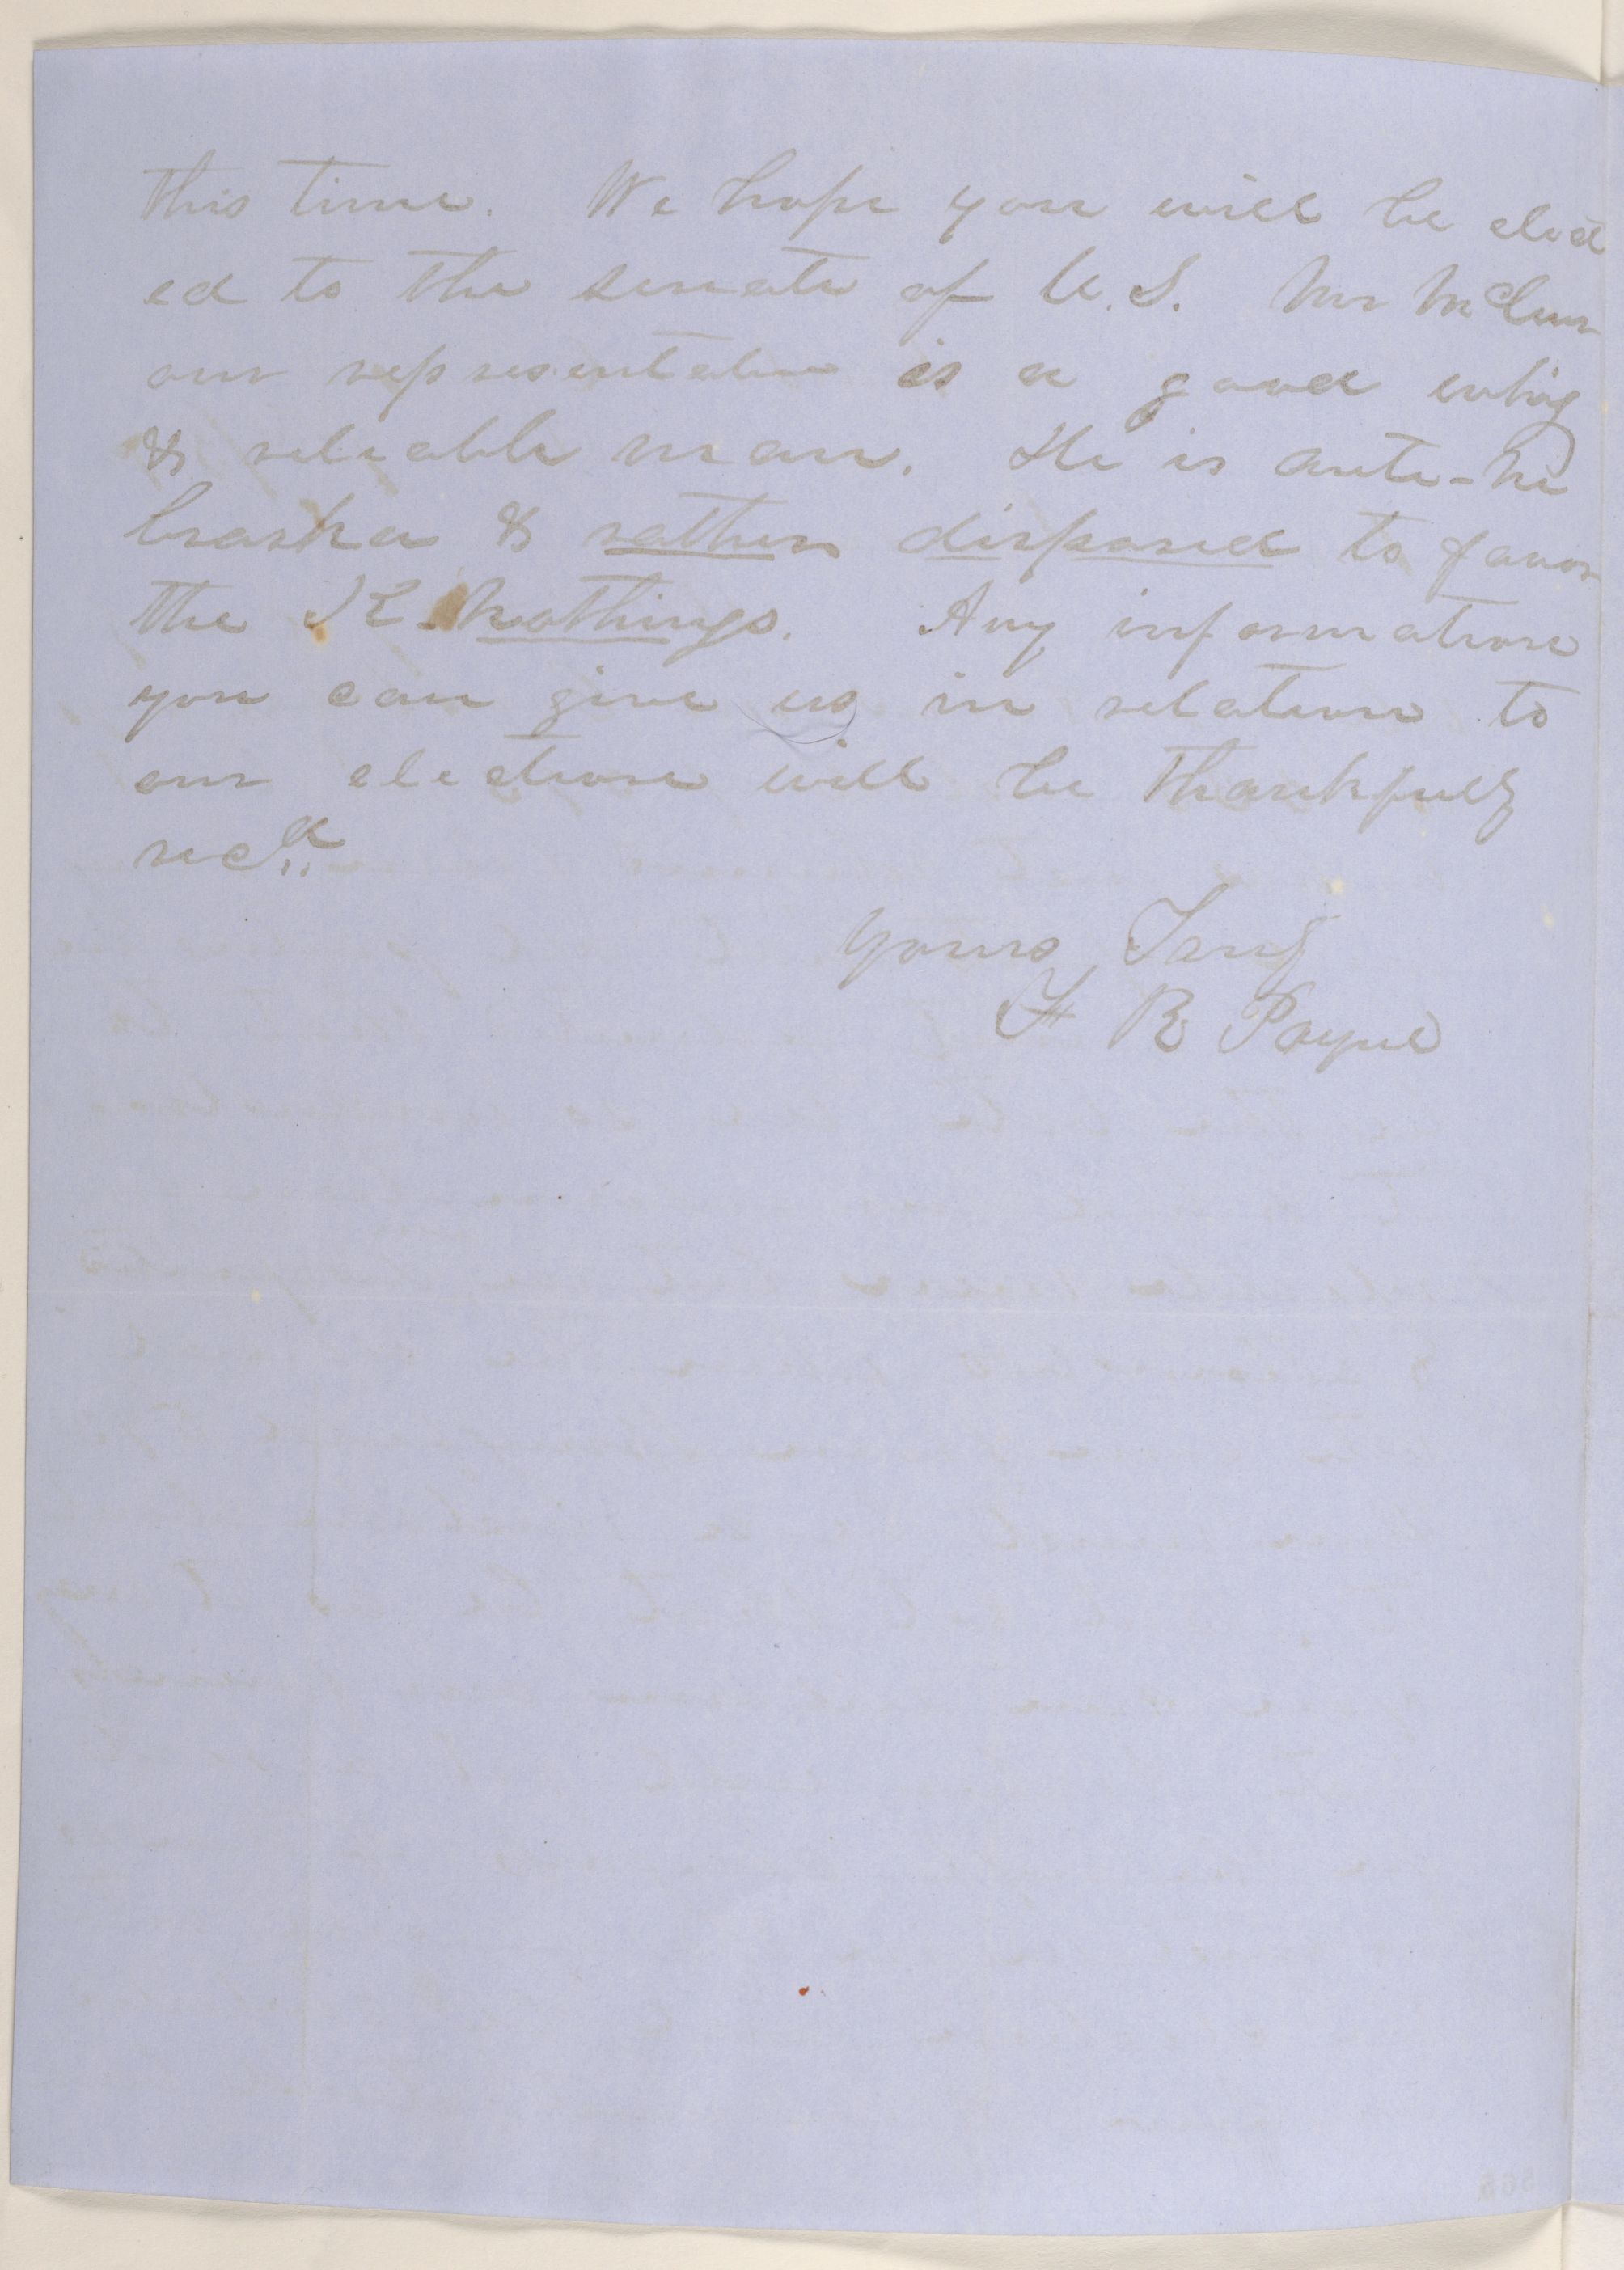 this time. We hope you will be elect
ed to the senate of U.S. Mr McClun
our representative is a good whig
& reliable man. He is ante-Ne
braska & rather disposed to favor
the K. Nothings. Any information
you can give us in relation to
our election will be thankfully
recd
Yours Truly
F R Payne